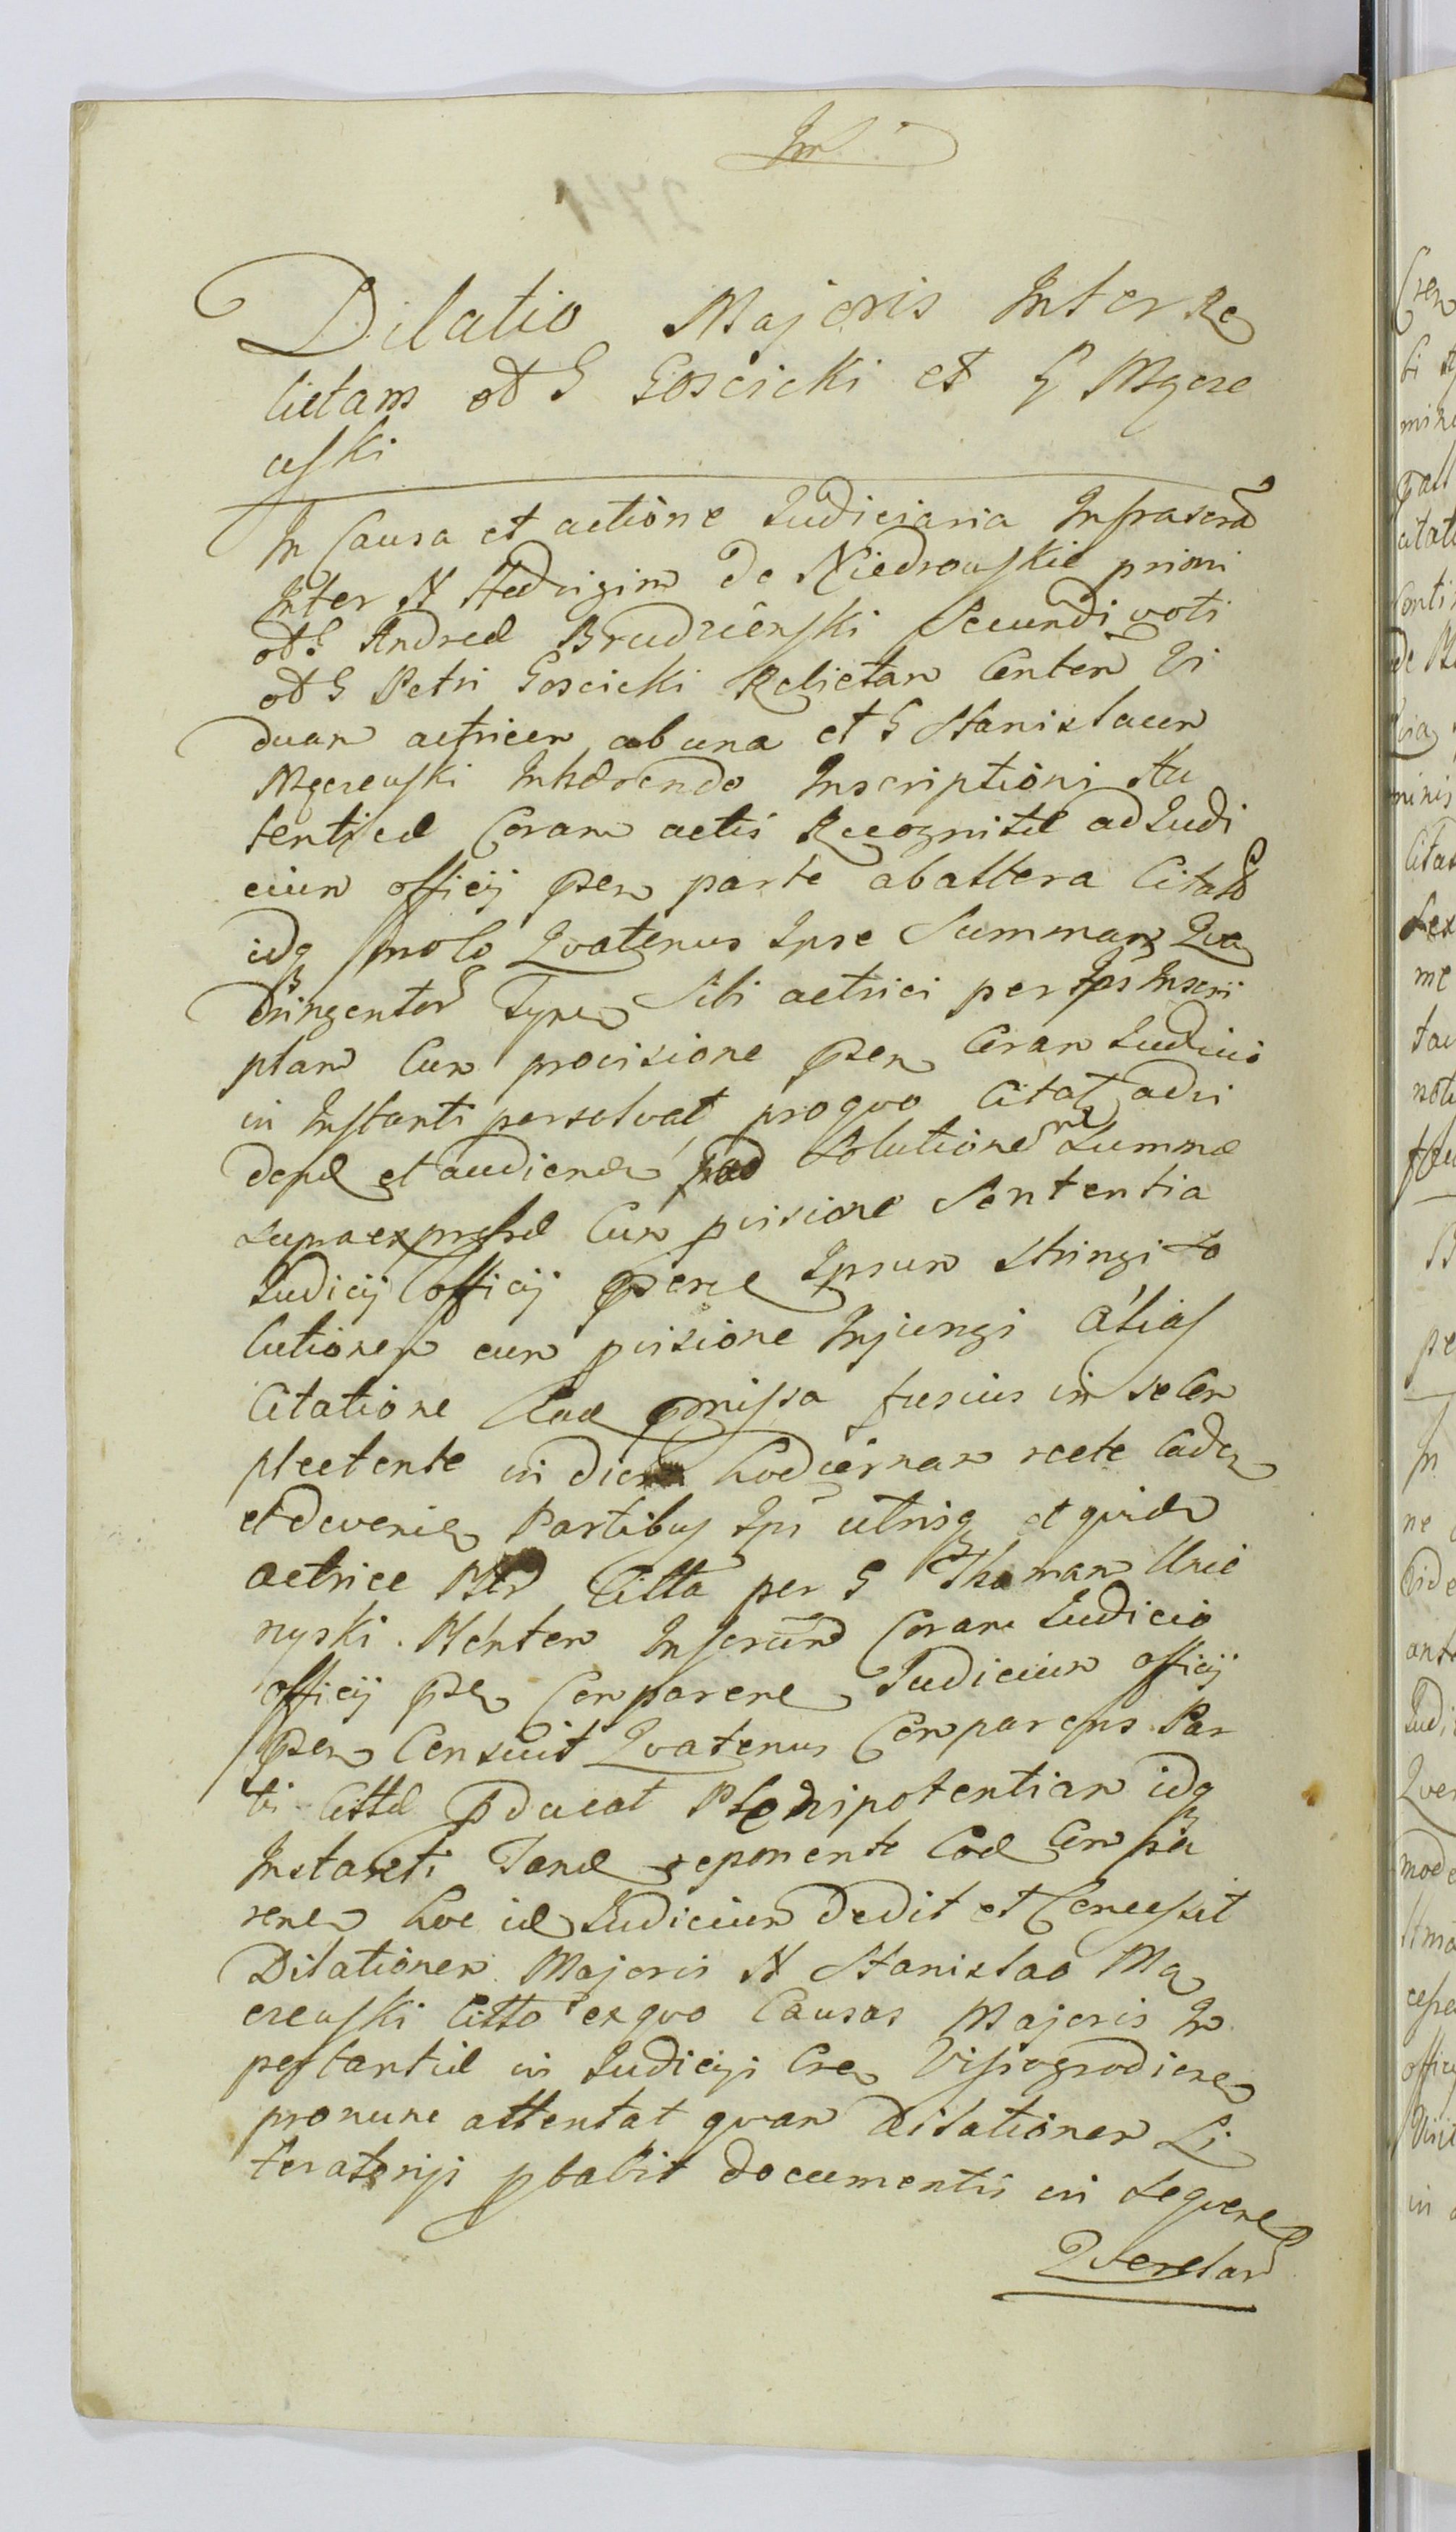 Dilatio Majoris Inter Re
lictam od G Goscicki et G Mgcze
wski
In Causa et actione Judiciaria Infrascra
Inter N Hedvigim de Niedrowskie primi
od G Andreæ Brudzienski Secundi voti
od G Petri Goscicki Relictam Conten Vi
duam actricem ab una et G Stanislaum
Mgczewski Inhærendo Inscriptioni Au
tenticæ Coram actis Recognitæ ad Judi
cium officij psen parte ab altera Citato
idq Quatenus Ipse Summam Qua
dringentor Tynf Sibi actrici per Ips Inscri
ptam Cum provisione psen Coram Judicio
in Instanti persolvat pro quo Citat advi
dend et audiend solutione Summæ
supraexpressæ Cum pvisione Sententia
Judicij officij psen Ipsum stringi so
lutionem cum pvisione Injungi alias
Citatione præmissa fusius in se Com
plectente in diem hodiernam recte Caden
et devenien Partibus Ips utrisq et quidem
actrice Citta per G Thomam
Coram Judicio
officij psen Comparen Judicium officij
psen Censuit Quatenus Comparens Par
ti Cittæ pducat Plenipotentiam idq
Instanti Tand reponente Eod Compa
rene hoc id Judicium Dedit et Concessit
Dilationem Majoris N Stanislao Mg
czewski Citto ex quo Causas Majoris Im
portantiæ in Judicijs Cren Vissogrodien
pronunc attentat quam Dilationem Li
teratorijs pbabit documentis in sequen
Querelar